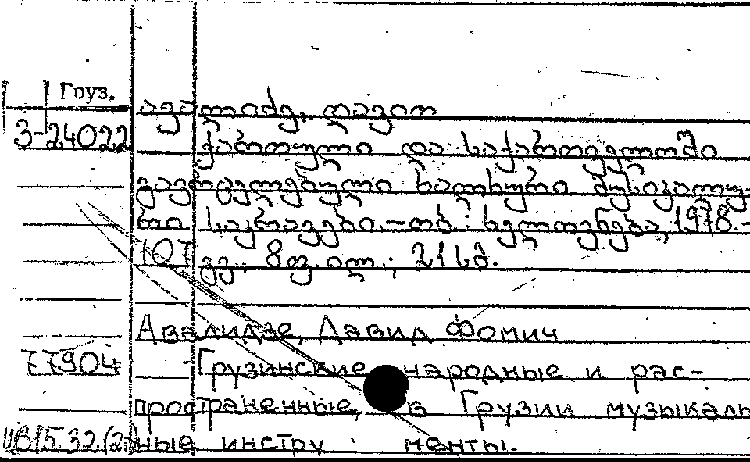 Груз.
ავალიძე, დავით
3-24022
ქართული და საქართველოში
გავრცელებული ხალხური მუსიკალუ-
რი საკრავები.-თბ.: ხელოვნება, 1978.-
107 გვ., 8ფ.ილ.; 21სმ.
Авалидзе, Давид Фомич
77904 Грузинские народные и рас-
пространенные, в Грузии музыкаль
ные инстру менты.